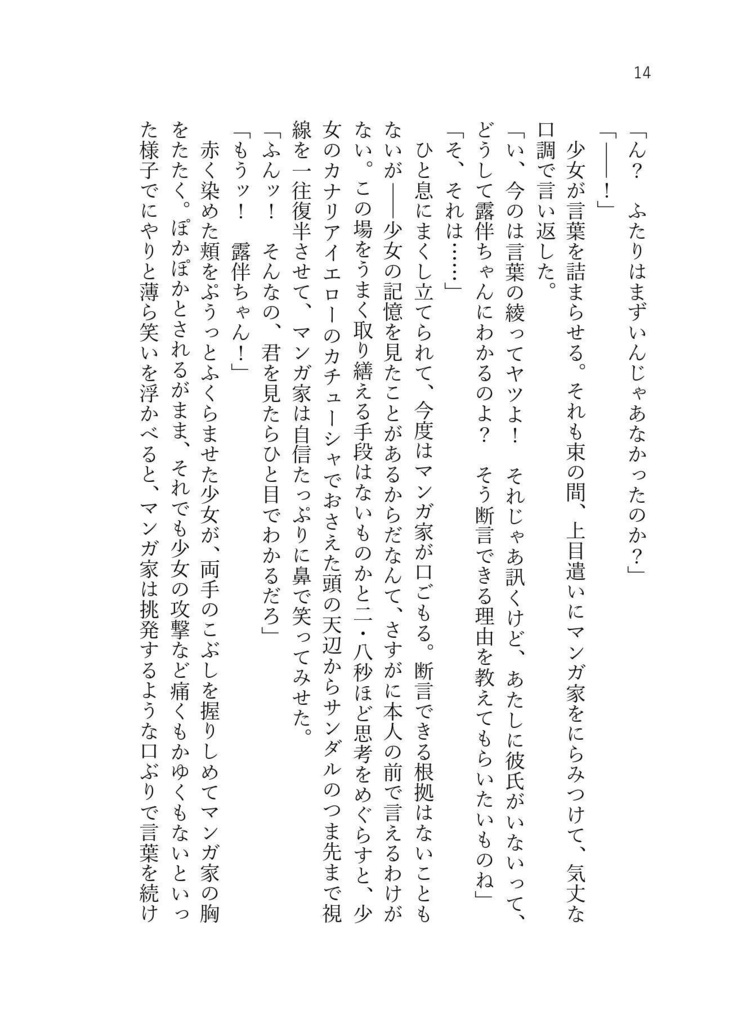 14
「ん？　ふたりはまずいんじゃあなかったのか？」
「――！」
　少女が言葉を詰まらせる。それも束の間、上目遣いにマンガ家をにらみつけて、気丈な
口調で言い返した。
「い、今のは言葉の綾ってヤツよ！　それじゃあ訊くけど、あたしに彼氏がいないって、
どうして露伴ちゃんにわかるのよ？　そう断言できる理由を教えてもらいたいものね」
「そ、それは……」
　ひと息にまくし立てられて、今度はマンガ家が口ごもる。断言できる根拠はないことも
ないが――少女の記憶を見たことがあるからだなんて、さすがに本人の前で言えるわけが
ない。この場をうまく取り繕える手段はないものかと二・八秒ほど思考をめぐらすと、少
女のカナリアイエローのカチューシャでおさえた頭の天辺からサンダルのつま先まで視
線を一往復半させて、マンガ家は自信たっぷりに鼻で笑ってみせた。
「ふんッ！　そんなの、君を見たらひと目でわかるだろ」
「もうッ！　露伴ちゃん！」
　赤く染めた頬をぷうっとふくらませた少女が、両手のこぶしを握りしめてマンガ家の胸
をたたく。ぽかぽかとされるがまま、それでも少女の攻撃など痛くもかゆくもないといっ
た様子でにやりと薄ら笑いを浮かべると、マンガ家は挑発するような口ぶりで言葉を続け